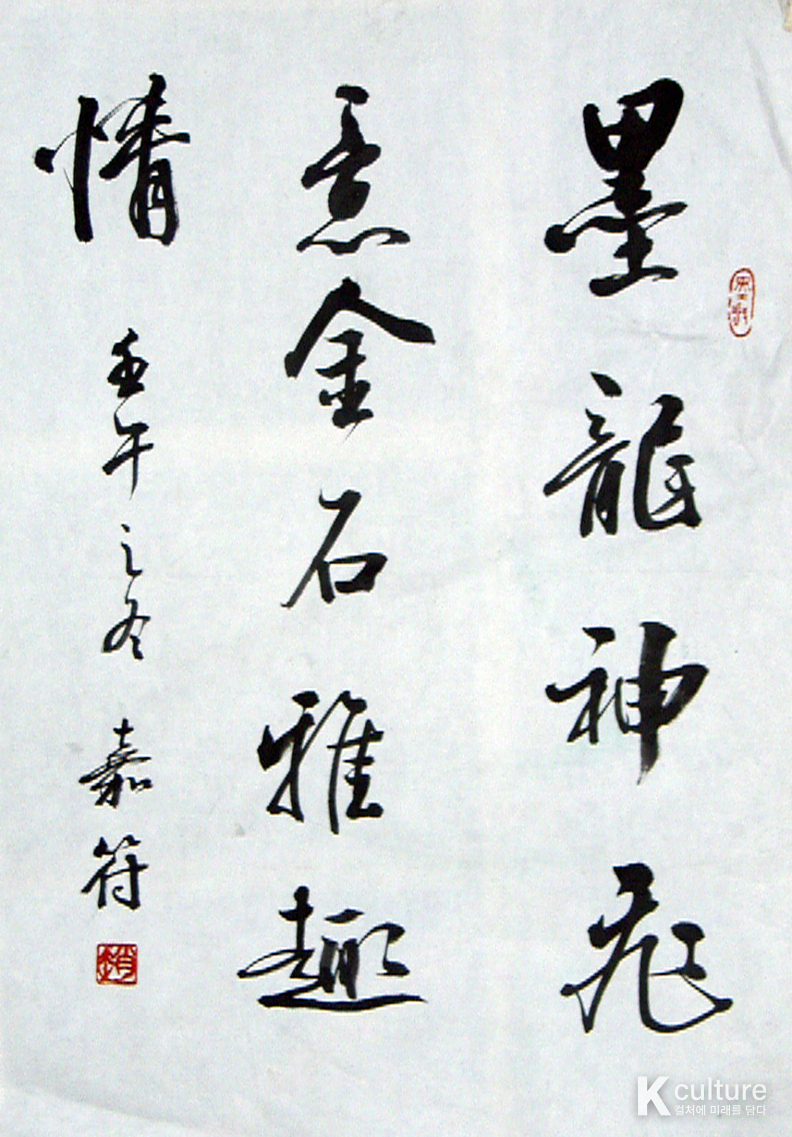 墨龍神飛
意金石雅趣
情
壬午之冬 嘉符
趙
K culture
컬처에 미래를 담다